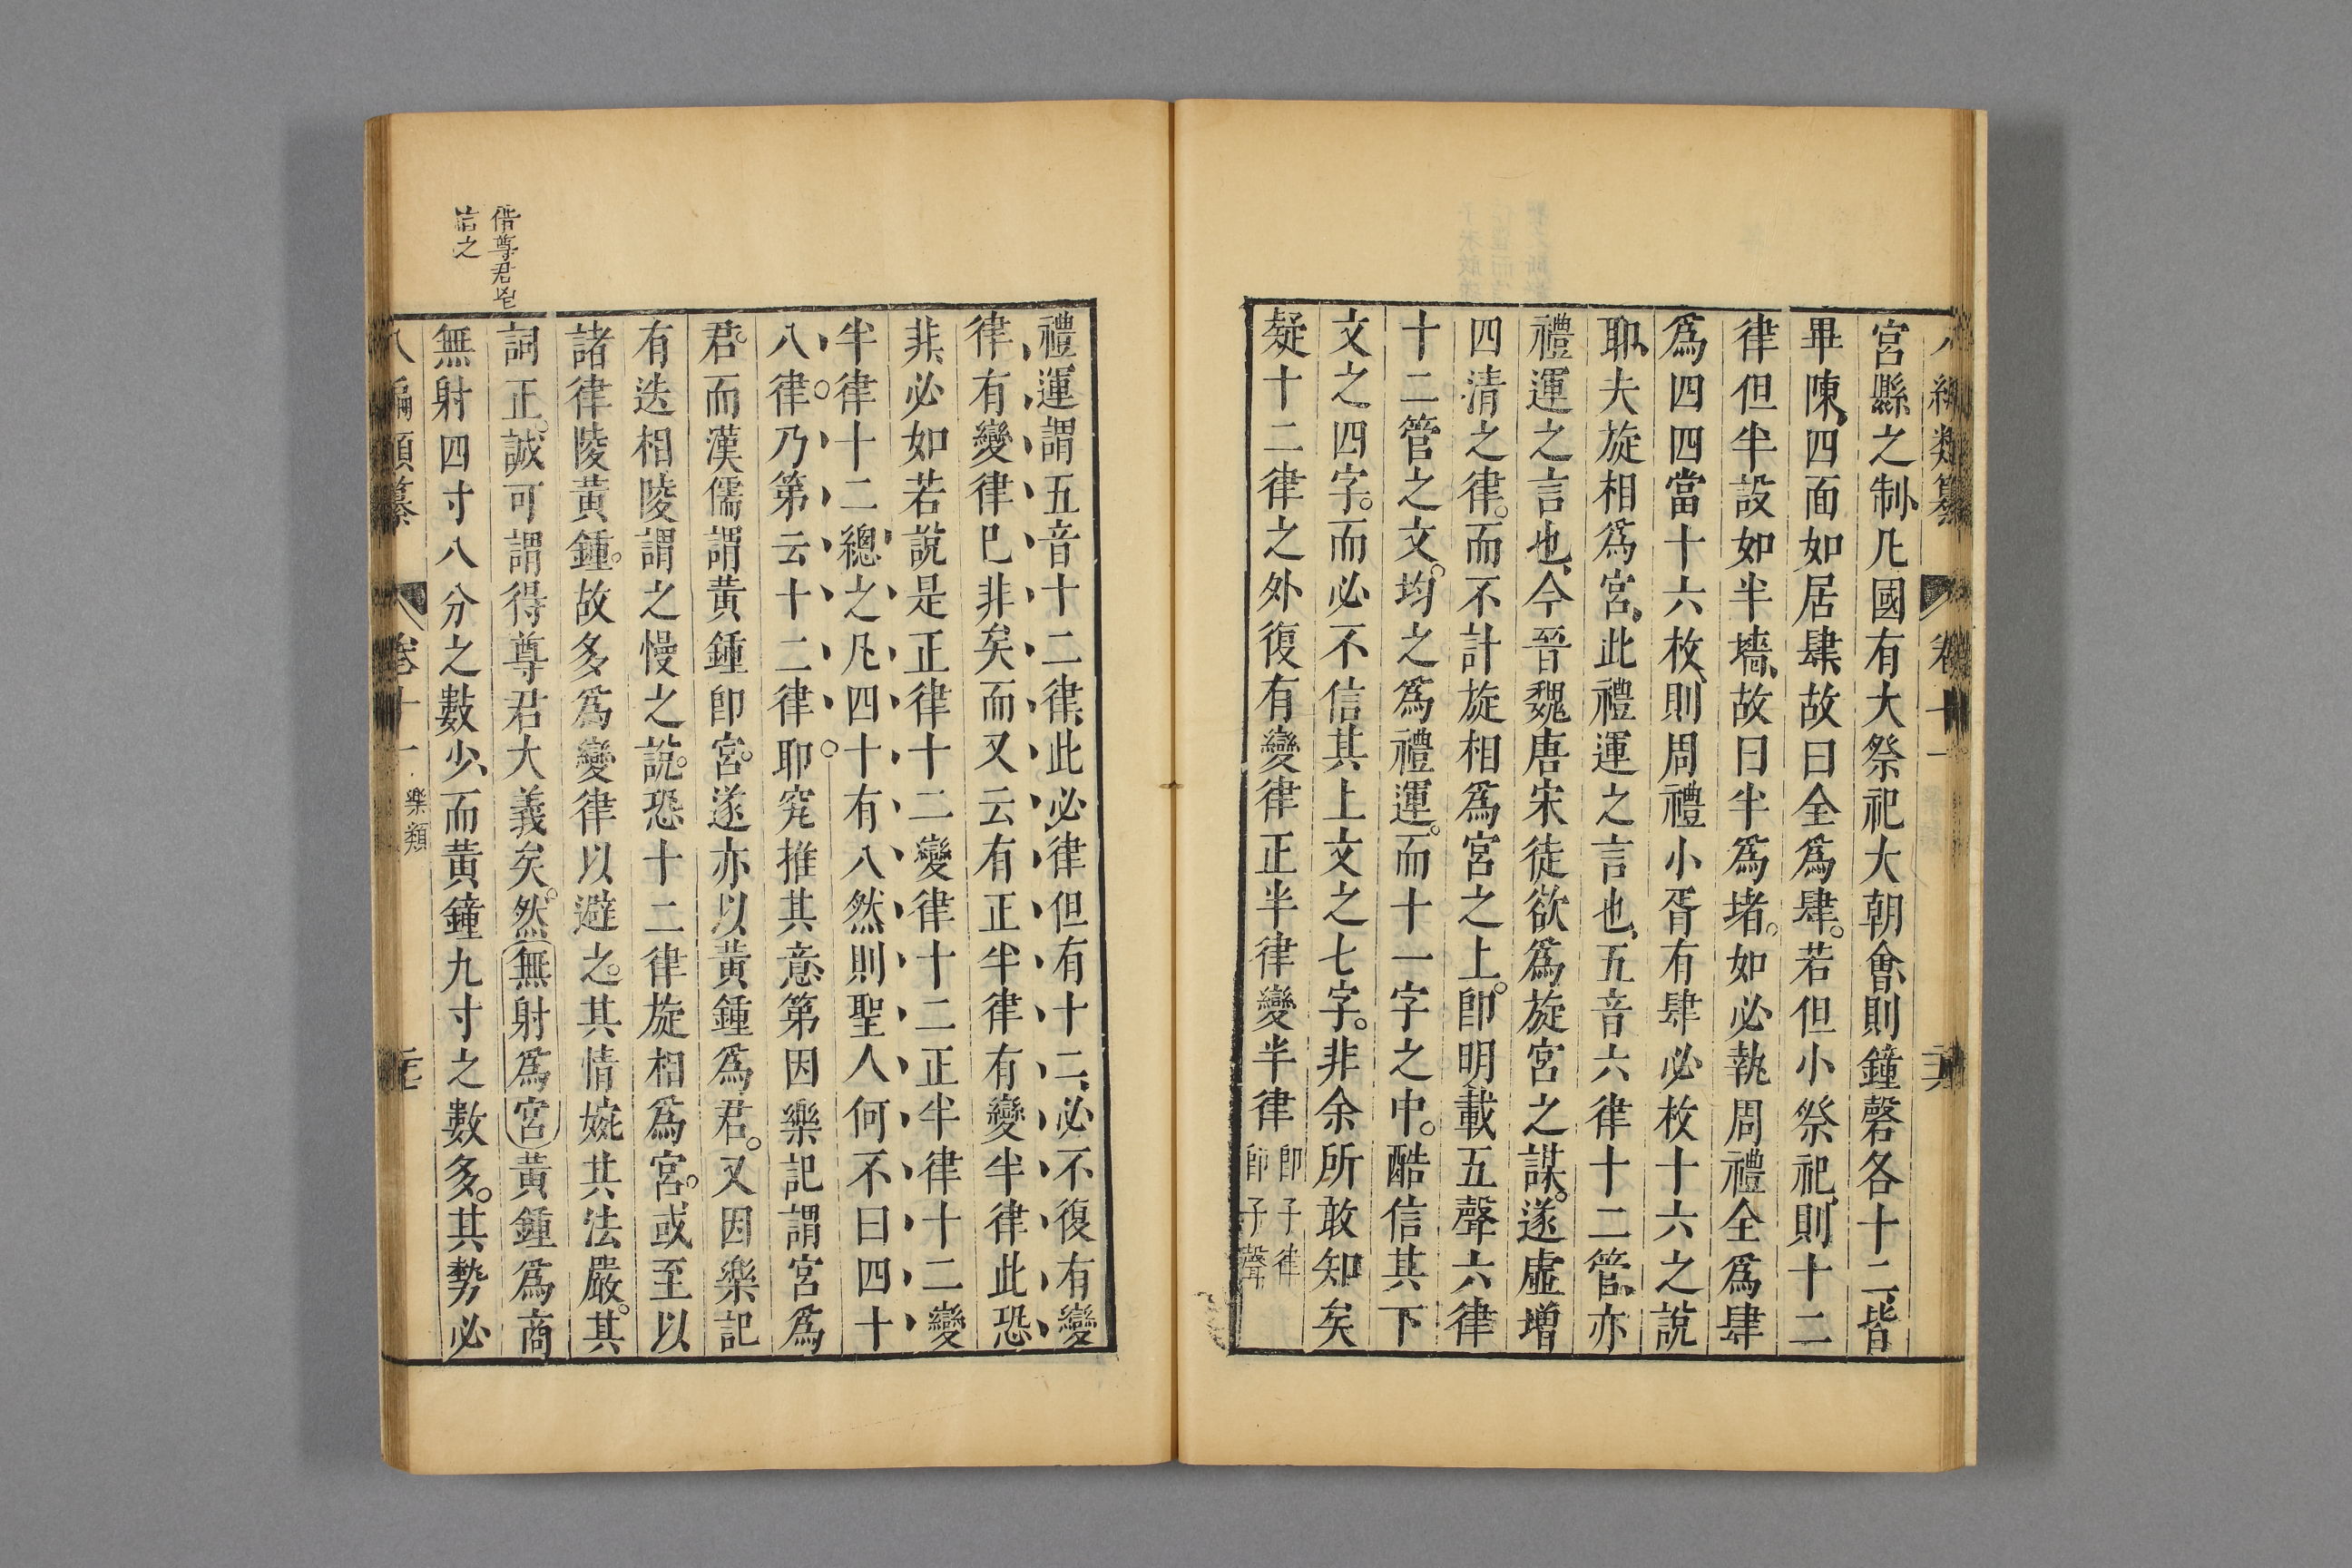 八編類纂 卷十一
宮縣之制凡國有大祭祀大朝會則鐘磬各十二皆
畢陳四面如居肆故曰全爲肆若但小祭祀則十二
律但半設如半墻故曰半爲堵如必執周禮全爲肆
爲四四當十六枚則周禮小胥有肆必枚十六之說
耶夫旋相爲宮此禮運之言也五音六律十二管亦
禮運之言也今晉魏唐宋徒欲爲旋宮之謀遂虛增
四清之律而不計旋相爲宮之上卽明載五聲六律
十二管之文均之爲禮運而十一字之中酷信其下
文之四字而必不信其上文之七字非余所敢知矣
疑十二律之外復有變律正半律變半律
卽子律
卽子聲
禮運謂五音十二律此必律但有十二必不復有變
律有變律巳非矣而又云有正半律有變半律此恐
非必如若說是正律十二變律十二正半律十二變
半律十二總之凡四十有八然則聖人何不曰四十
八律乃第云十二律耶究推其意第因樂記謂宮爲
君而漢儒謂黃鍾卽宮遂亦以黃鍾爲君又因樂記
有迭相陵謂之慢之說恐十二律旋相爲宮或至以
諸律陵黃鍾故多爲變律以避之其情婉其法嚴其
詞正誠可謂得尊君大義矣然無射爲宮黃鍾爲商
無射四寸八分之數少而黃鐘九寸之數多其勢必
借尊君
之
八編類纂 卷十一 樂類